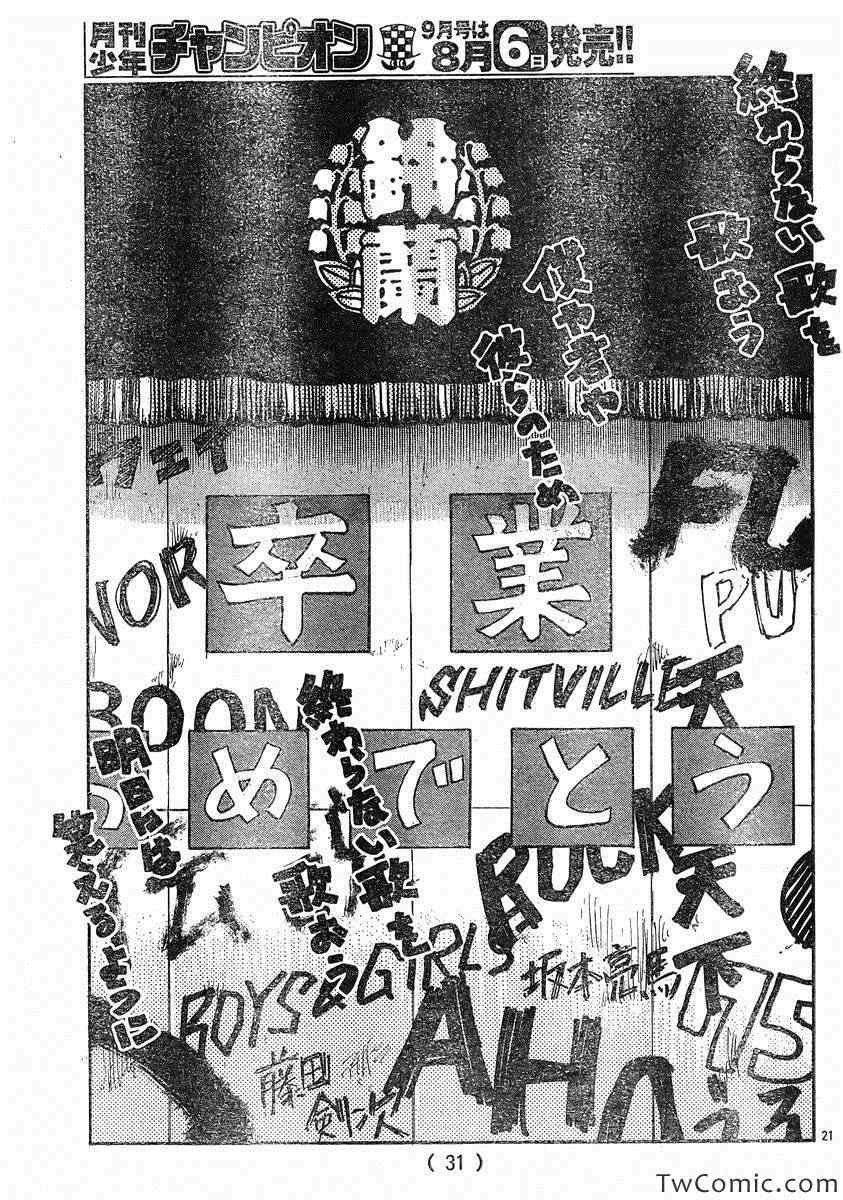 月刊
少年
チャンピオン
9月号は
8月6日発売!!
終わらない歌を
歌おう
僕や君や
彼らのため
ウェイ
FU
卒業
NOR
PU
SHITVILLE
BOON
天
めでとう
終わらない歌を
歌おう
明日には
笑えるように
ROCK
天下
BOYS&GIRLS
坂本亮馬
75
AHO
藤田
剣次
うろ
21
( 31 )
TwComic.com